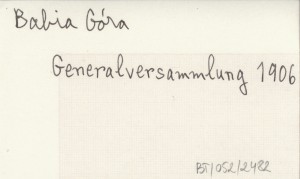 Babia Góra
Generalversammlung 1906
BT/052/2482